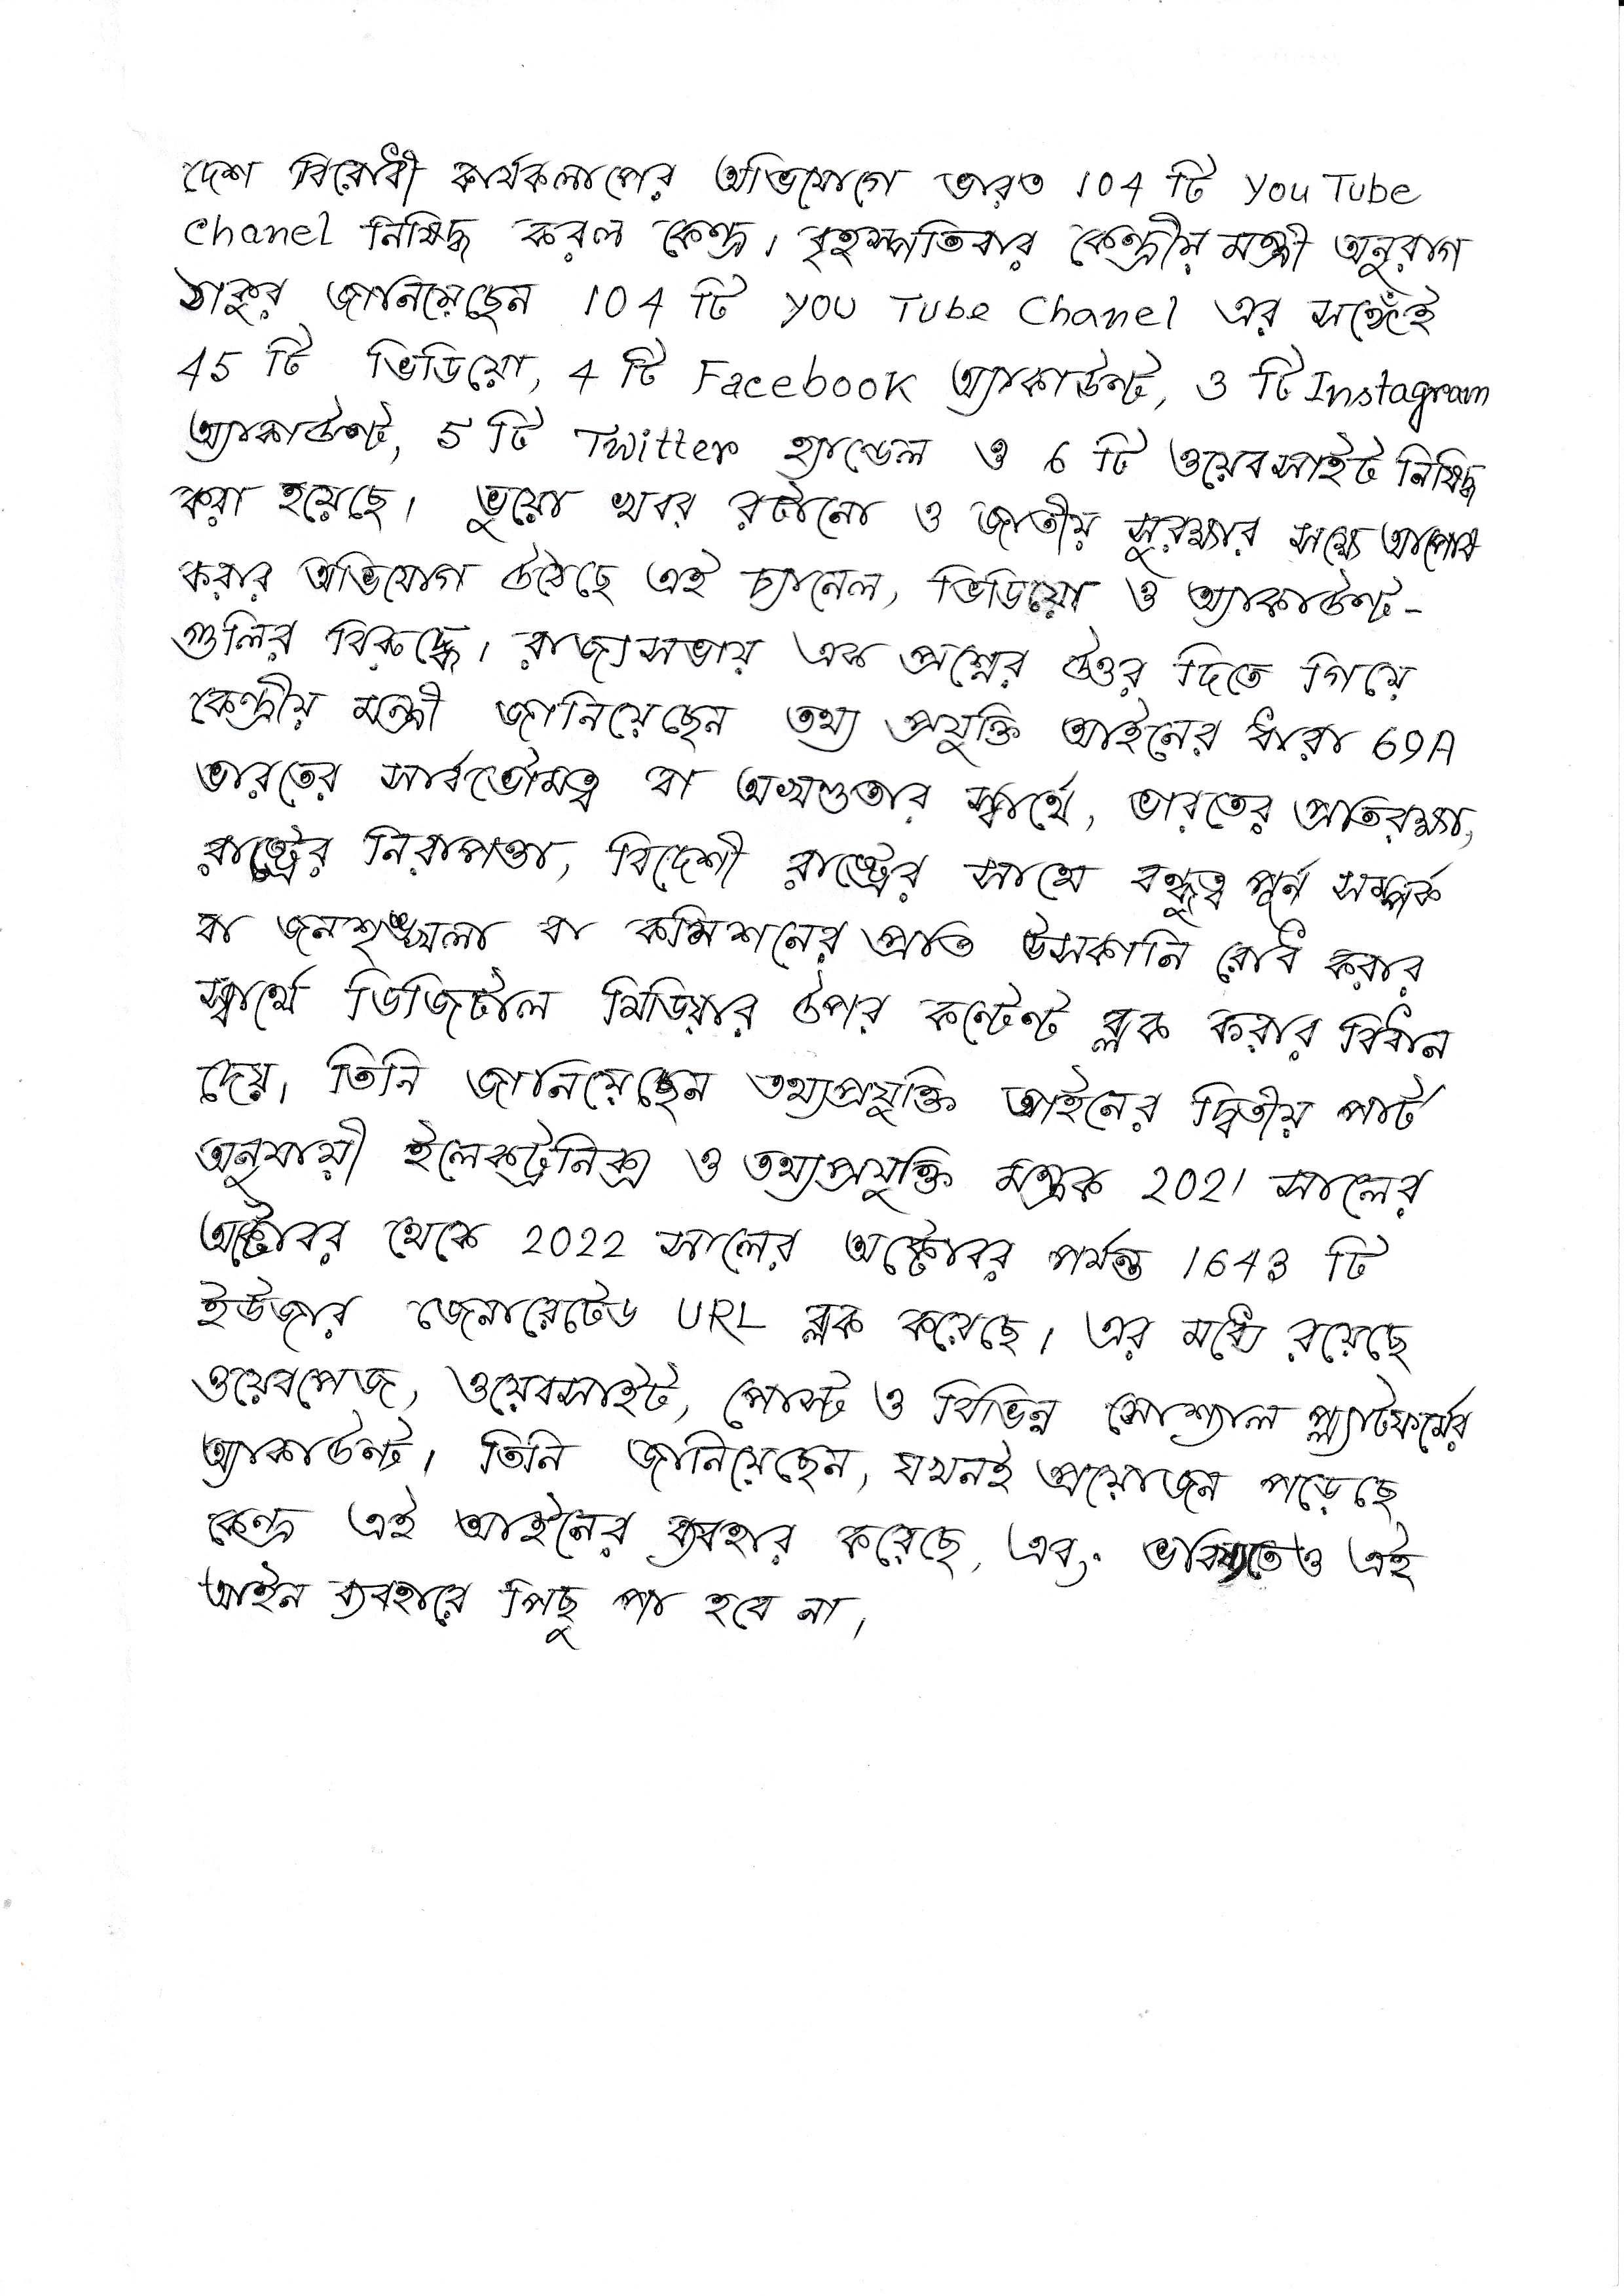 দেশ বিরোধী কার্যকলাপের অভিযোগে ভারত 104 টি YouTube
Chanel নিষিদ্ধ করল কেন্দ্র। বৃহস্পতিবার কেন্দ্রীয় মন্ত্রী অনুরাগ
ঠাকুর জানিয়েছেন 104 টি YOU Tube Chanel এর সঙ্গেঁই
45 টি ভিডিয়ো, 4 টি Facebook অ্যাকাউন্ট, 3 টি Instagram
অ্যাকাউন্ট, 5 টি Twitter হ্যান্ডেল ও 6 টি ওয়েবসাইট নিষিদ্ধ
করা হয়েছে। ভুয়ো খবর রটানো ও জাতীয় সুরক্ষার সঙ্গে আপোষ
করার অভিযোগ উঠেছে এই চ্যানেল, ভিডিয়ো ও অ্যাকাউন্ট-
গুলির বিরুদ্ধে। রাজ্যসভায় এক প্রশ্নের উত্তর দিতে গিয়ে
কেন্দ্রীয় মন্ত্রী জানিয়েছেন তথ্য প্রযুক্তি আইনের ধারা 69A
ভারতের সার্বভৌমত্ব বা অখণ্ডতার স্বার্থে, ভারতের প্রতিরক্ষা,
রাষ্ট্রের নিরাপত্তা, বিদেশী রাষ্ট্রের সাথে বন্ধুত্ব পূর্ন সম্পর্ক
বা জনশৃঙ্খলা বা কমিশনের প্রতি উসকানি রোধ করার
স্বার্থে ডিজিটাল মিডিয়ার উপর কন্টেন্ট ব্লক করার বিধান
দেয়। তিনি জানিয়েছেন তথ্যপ্রযুক্তি আইনের দ্বিতীয় পার্ট
অনুযায়ী ইলেকট্রনিক্স ও তথ্যপ্রযুক্তি মন্ত্রক 2021 সালের
অক্টোবর থেকে 2022 সালের অক্টোবর পর্যন্ত 1643 টি
ইউজার জেনারেটেড URL ব্লক করেছে। এর মধ্যে রয়েছে
ওয়েবপেজ, ওয়েবসাইট, পোস্ট ও বিভিন্ন সোশ্যাল প্ল্যাটফর্মের
অ্যাকাউন্ট। তিনি জানিয়েছেন, যখনই প্রয়োজন পড়েছে
কেন্দ্র এই আইনের ব্যবহার করেছে, এবং ভবিষ্যতেও এই
আইন ব্যবহারে পিছু পা হবে না।